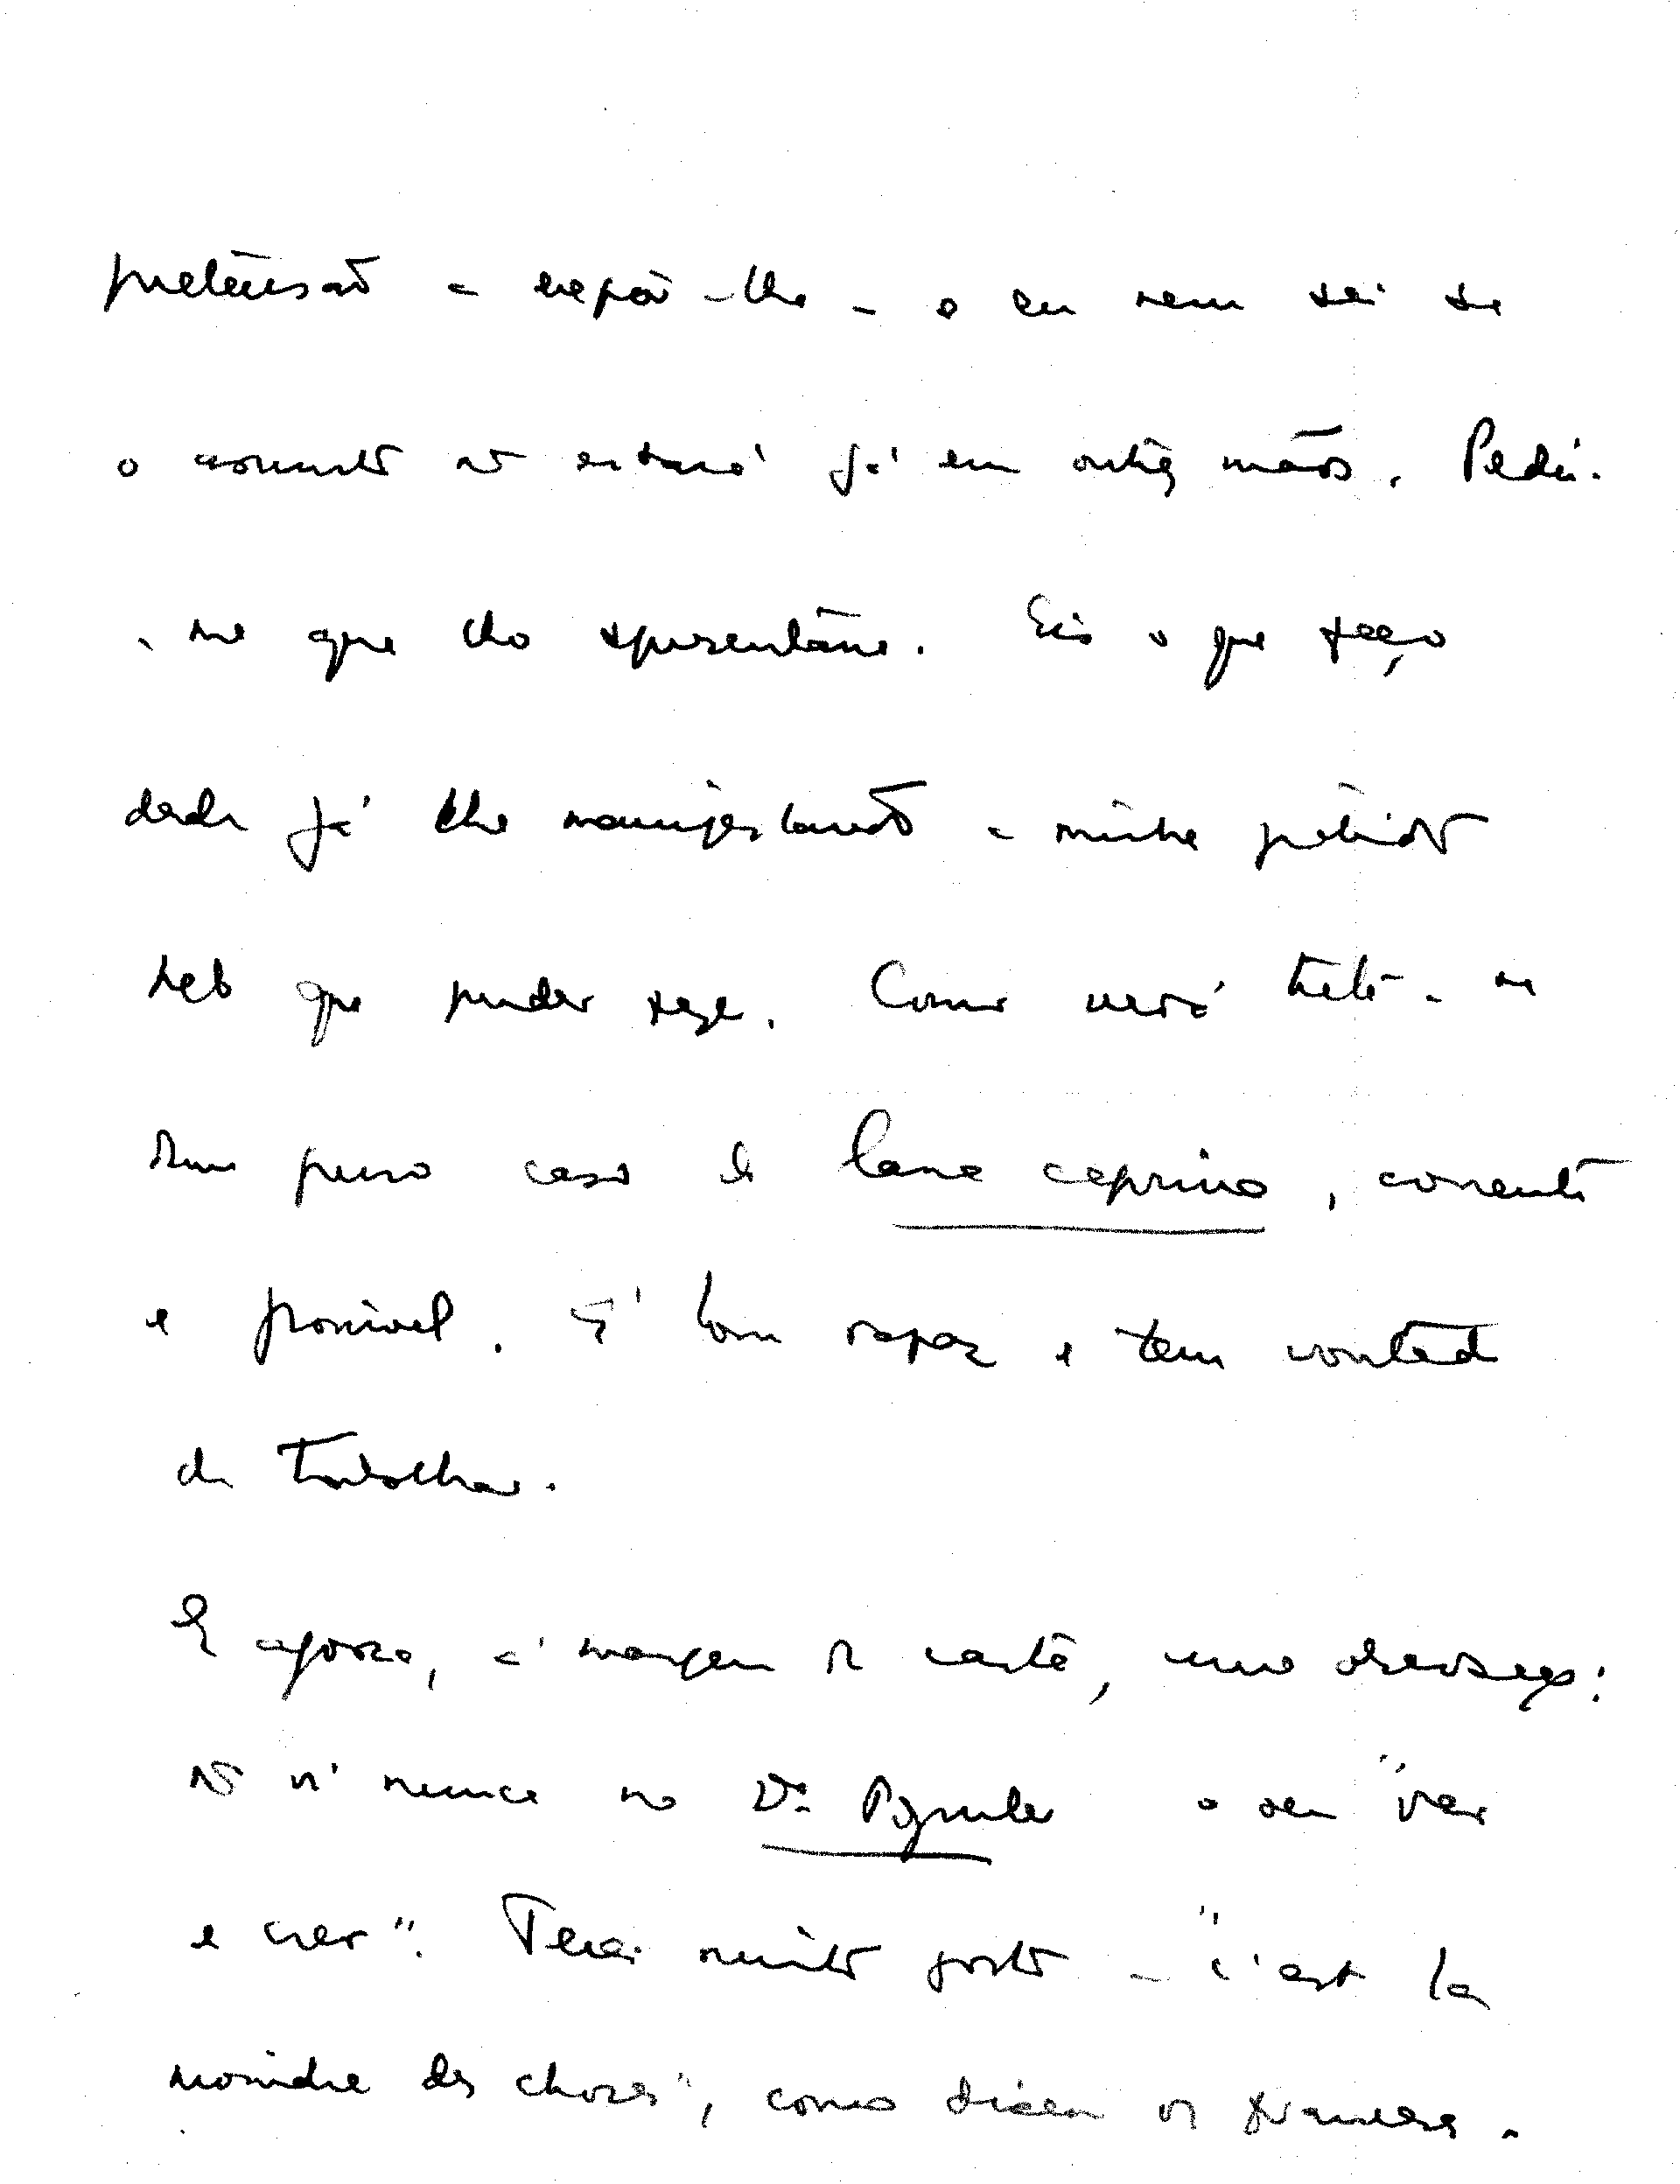 pretensão a expor-lhe - e eu nem sei se
o assunto não estará já em outras mãos. Pediu-
-me que lho apresentasse. Eis o que faço
desde já lhe manifestando a minha gratidão
pelo que puder fazer. Como verá trata-se
dum puro caso de lana caprina, corrente
e possivel. É bom rapaz e tem vontade
de trabalhar.
E agora, à margem da carta, uma observação:
não vi nunca no Dº Popular o seu "ver
e crer". Terei muito gosto - "c'est la
moindre des choses", como dizem os franceses -